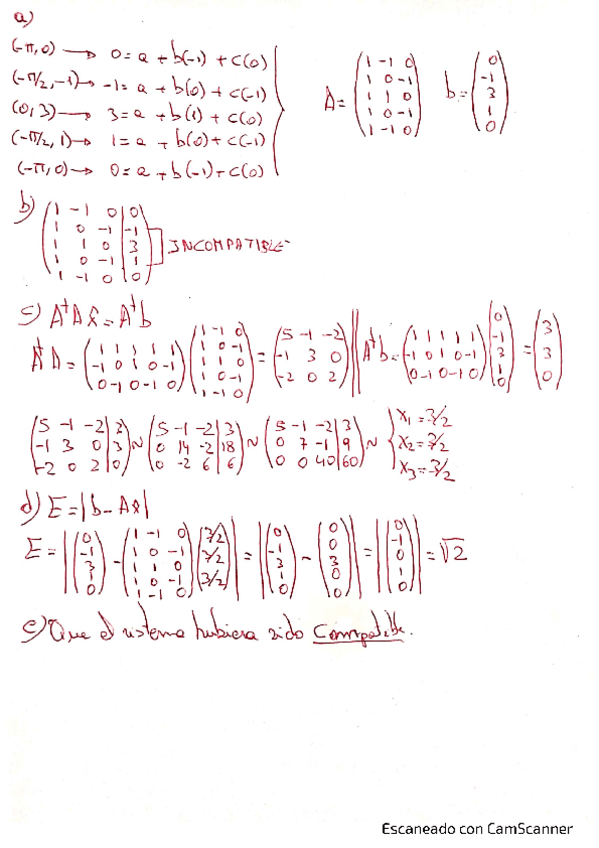 a)
(-π, 0) → 0 = a + b(-1) + c(0)
(-π/2, -1) → -1 = a + b(0) + c(-1)
(0, 3) → 3 = a + b(1) + c(0)
(-π/2, 1) → 1 = a + b(0) + c(-1)
(-π, 0) → 0 = a + b(-1) + c(0)
A = (1 -1 0; 1 0 -1; 1 1 0; 1 0 -1; 1 -1 0) b = (0; -1; 3; 1; 0)
b) (1 -1 0 | 0; 1 0 -1 | -1; 1 1 0 | 3; 1 0 -1 | 1; 1 -1 0 | 0) INCOMPATIBLE
c) AᵗA x̂ = Aᵗb
AᵗA = (1 1 1 1 1; -1 0 1 0 -1; 0 -1 0 -1 0) (1 -1 0; 1 0 -1; 1 1 0; 1 0 -1; 1 -1 0) = (5 -1 -2; -1 3 0; -2 0 2) || Aᵗb = (1 1 1 1 1; -1 0 1 0 -1; 0 -1 0 -1 0) (0; -1; 3; 1; 0) = (3; 3; 0)
(5 -1 -2 | 3; -1 3 0 | 3; -2 0 2 | 0) ~ (5 -1 -2 | 3; 0 14 -2 | 18; 0 -2 6 | 6) ~ (5 -1 -2 | 3; 0 7 -1 | 9; 0 0 40 | 60) ~ { x₁ = 3/2 x₂ = 3/2 x₃ = 3/2
d) E = |b - A x̂|
E = |(0; -1; 3; 1; 0) - (1 -1 0; 1 0 -1; 1 1 0; 1 0 -1; 1 -1 0) (3/2; 3/2; 3/2)| = |(0; -1; 3; 1; 0) - (0; 0; 3; 0; 0)| = |(0; -1; 0; 1; 0)| = √2
e) Que el sistema hubiera sido Compatible.
Escaneado con CamScanner